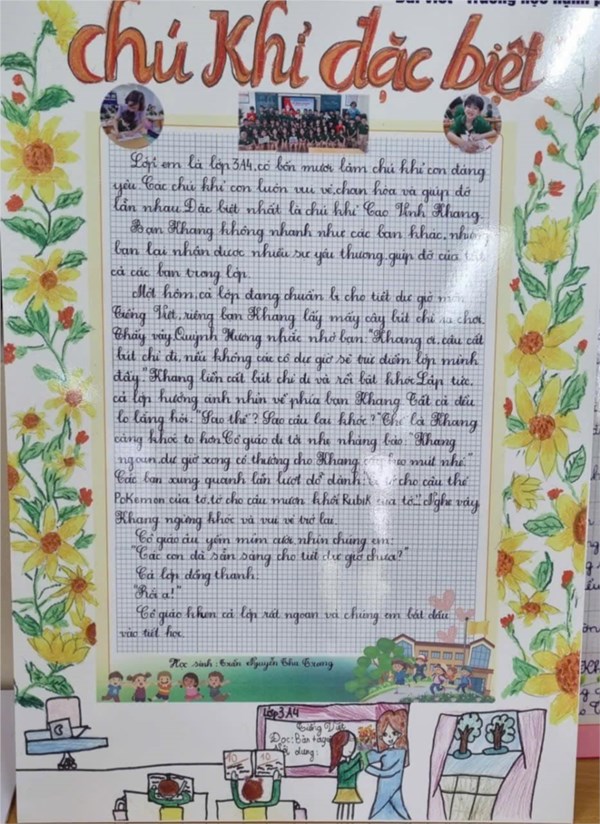 Bài viết - Trường học hạnh
chú Khỉ đặc biệt
Lớp em là lớp 3A4, có bốn mươi lăm chú khỉ con đáng
yêu. Các chú khỉ con luôn vui vẻ, chan hòa và giúp đỡ
lẫn nhau. Đặc biệt nhất là chú khỉ Cao Vinh Khang.
Bạn Khang không nhanh như các bạn khác, nhưng
bạn lại nhận được nhiều sự yêu thương, giúp đỡ của tất
cả các bạn trong lớp.
Một hôm, cả lớp đang chuẩn bị cho tiết dự giờ môn
Tiếng Việt, riêng bạn Khang lấy mấy cây bút chì ra chơi.
Thấy vậy, Quỳnh Hương nhắc nhở bạn: "Khang ơi, cậu cất
bút chì đi, nếu không các cô dự giờ sẽ trừ điểm lớp mình
đấy." Khang liền cất bút chì đi và rồi bật khóc. Lập tức,
cả lớp hướng ánh nhìn về phía bạn Khang. Tất cả đều
lo lắng hỏi: "Sao thế? Sao cậu lại khóc?" Thế là Khang
càng khóc to hơn. Cô giáo đi tới nhẹ nhàng bảo: "Khang
ngoan, dự giờ xong cô thưởng cho Khang kẹo mút nhé."
Các bạn xung quanh lần lượt dỗ dành: tớ cho cậu thẻ
PoKemon của tớ, tớ cho cậu mượn khối Rubik của tớ..." Nghe vậy
Khang ngừng khóc và vui vẻ trở lại.
Cô giáo âu yếm mỉm cười nhìn chúng em:
"Các con đã sẵn sàng cho tiết dự giờ chưa?"
Cả lớp đồng thanh:
"Rồi ạ!"
Cô giáo khen cả lớp rất ngoan và chúng em bắt đầu
vào tiết học.
Học sinh: Trần Nguyễn Thu Trang
Lớp 3A4
Tiếng Việt
Đọc: Bàn tay
Nội dung:
10 10